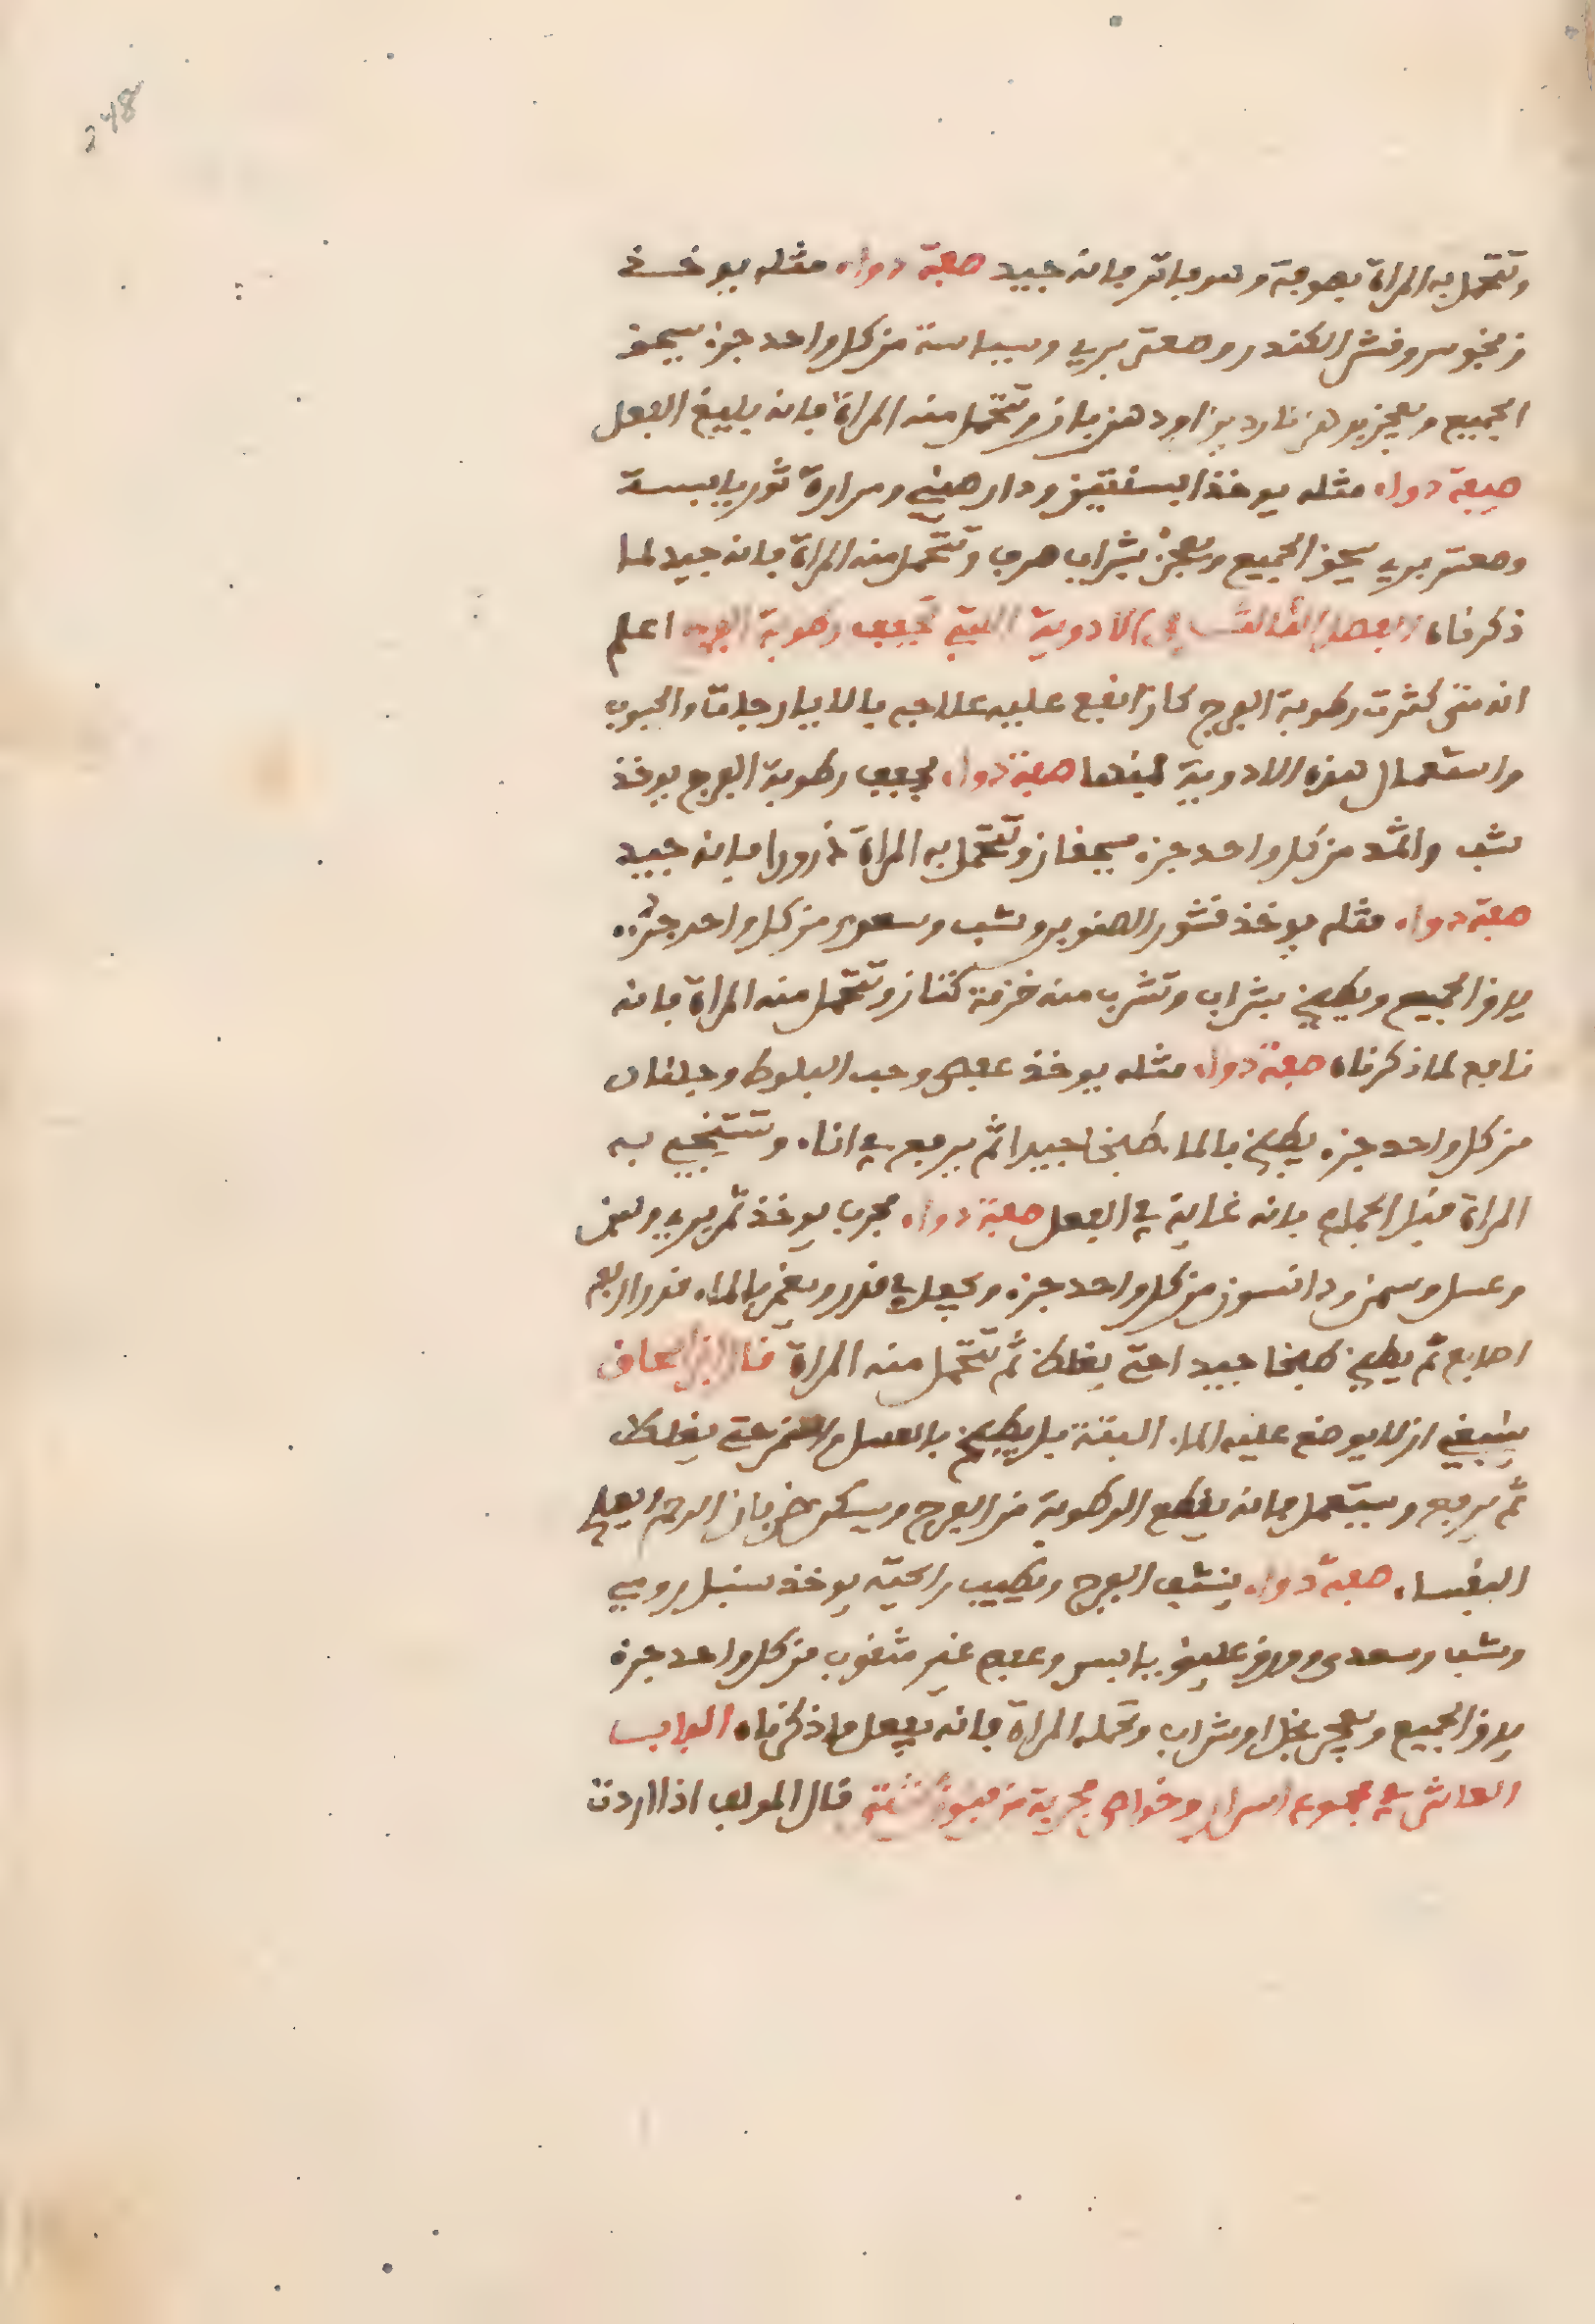 248
وتتحمل به المراة بصوفة وهو فاتر فانه جيد صفة دواء مثله يوخذ
زنجفور وقشر الكندر وصعتر بري وبسباسة من كل واحد جزء يسحق
الجميع ويعجن بدهن ناردين او دهن بان وتتحمل منه المراة فانه بليغ الفعل
صفة دواء مثله يوخذ ابسنتين ودار صيني ومرارة ثور يابسة
وصعتر بري يسحق الجميع ويعجن بشراب صرف وتتحمل منه المراة فانه جيد لما
ذكرناه الفصل الثالث في الادوية التي تجفف رطوبة الفرج اعلم
انه متى كثرت رطوبة الفرج كان انفع عليه علاجه بالايارجات والحبوب
واستعمال هذه الادوية فمنها صفة دواء يجفف رطوبة الفرج يوخذ
شب واثمد من كل واحد جزء يسحقان وتتحمل به المراة ذرورا فانه جيد
صفة دواء مثله يوخذ قشور الصنوبر وشب وسعدى من كل واحد جزء
يدق الجميع ويطبخ بشراب وتشرب منه خرقة كتان وتتحمل منه المراة فانه
نافع لما ذكرناه صفة دواء مثله يوخذ عفص وحب البلوط وجلنار
من كل واحد جزء يطبخ بالماء طبخا جيدا ثم يرفع في اناء وتستنجي به
المراة قبل الجماع فانه غاية في الفعل صفة دواء مجرب يوخذ تمر بري وسمن
وعسل وسمن ودانسون من كل واحد جزء ويجعل في قدر ويغمر بالماء قدر اربع
اصابع ثم يطبخ طبخا جيدا حتى يغلظ ثم تتحمل منه المراة قال ابن اسحاق
ينبغي ان لا يوضع عليه الماء البتة بل يطبخ بالعسل والسمن حتى يغلظ
ثم يرفع ويستعمل فانه يقطع الرطوبة من الفرج ويسكن ضربان الرحم
النفساء صفة دواء ينشف الفرج ويطيب رايحته يوخذ سنبل رومي
وشب وسعدى وورق عليق يابس وعفص غير مثقوب من كل واحد جزء
يدق الجميع ويعجن بخل او شراب وتحمله المراة فانه يفعل ما ذكرناه الباب
العاشر في مجموع اسرار وخواص مجربة من فنون شتى قال المولف اذا اردت